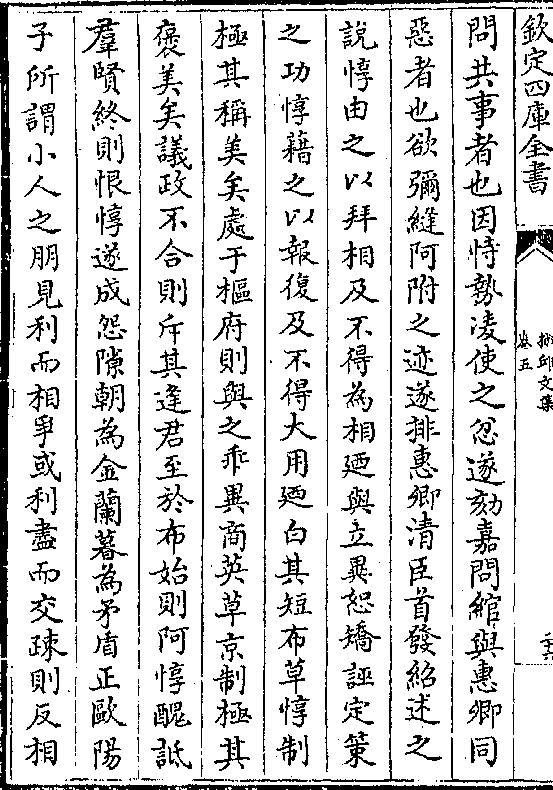 欽定四庫全書
卷五
問共事者也因恃勢凌使之忿遂劾嘉問綰與惠卿同
惡者也欲彌縫阿附之迹遂排惠卿清臣首發紹述之
說惇由之以拜相及不得為相廼與立異恕矯誣定策
之功惇藉之以報復及不得大用廼白其短布草惇制
極其稱美矣處于樞府則與之乖異商英草京制極其
褒美矣議政不合則斥其逢君至於布始則阿惇醜詆
羣賢終則恨惇遂成怨隙朝為金蘭暮為矛盾正歐陽
子所謂小人之朋見利而相爭或利盡而交疎則反相